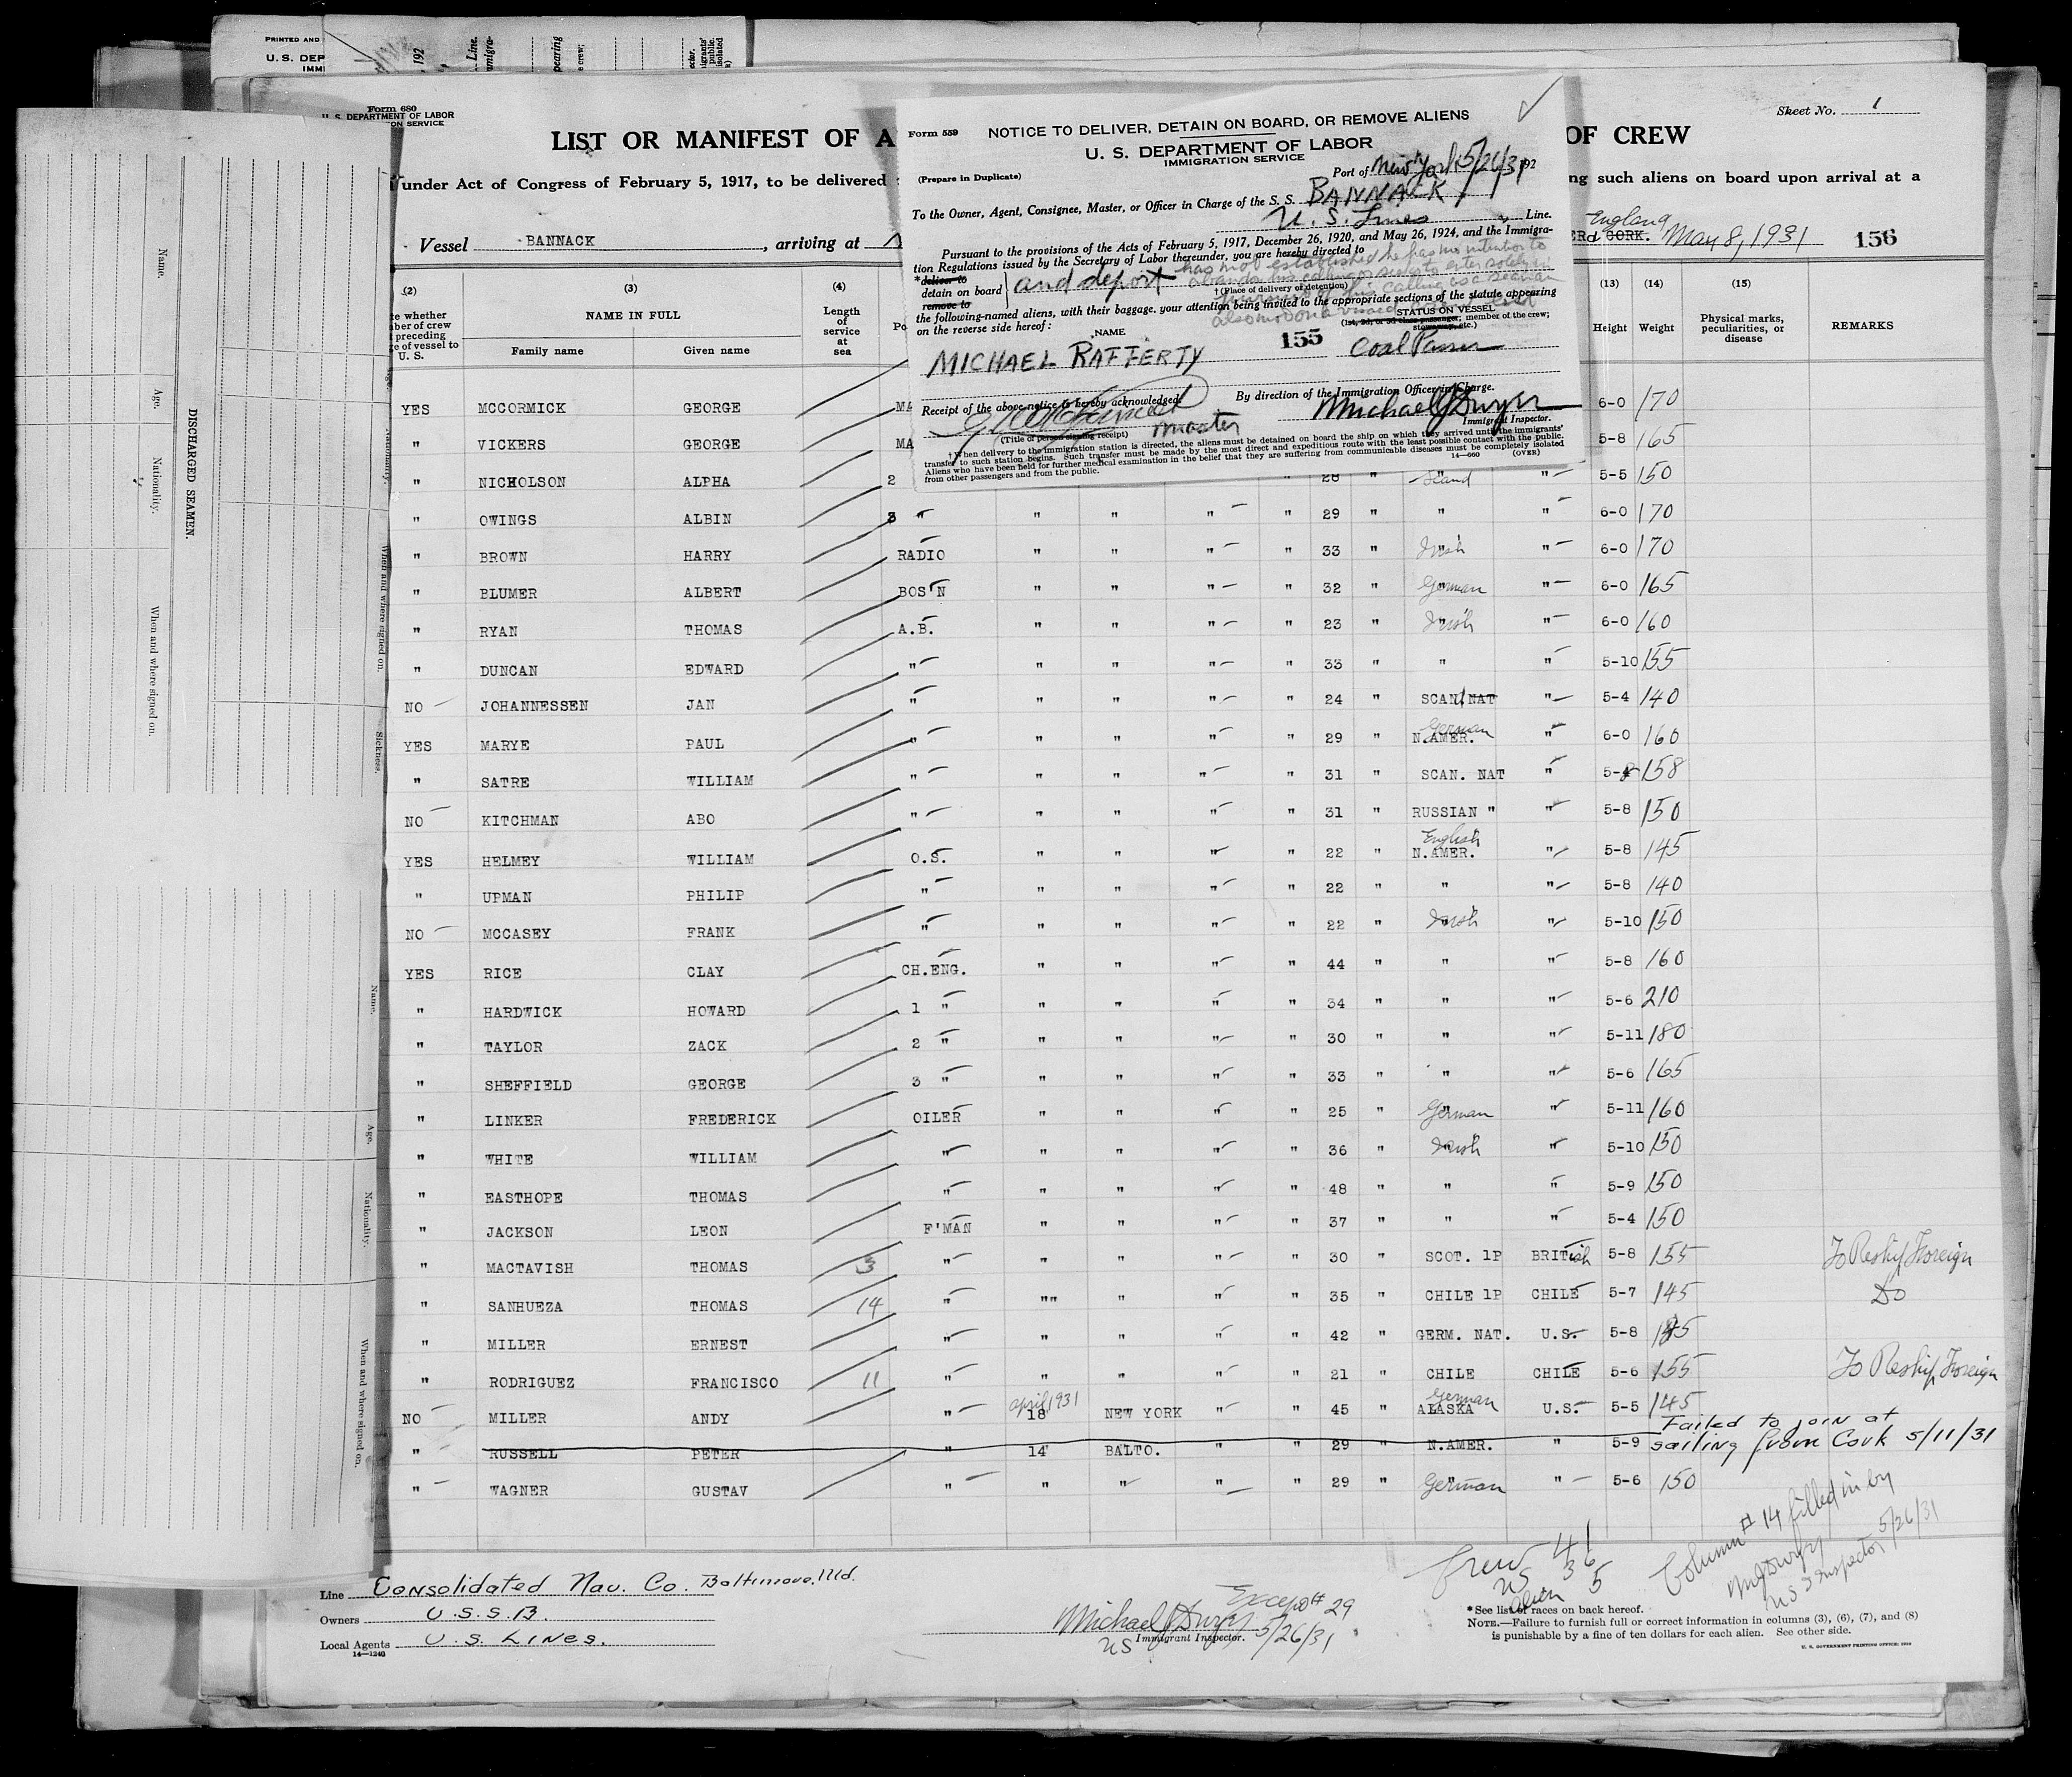 PRINTED AND
U. S. DEP
IMMI
192
Line.
Form 680
U. S. DEPARTMENT OF LABOR
ON SERVICE
Sheet No. 1
LIST OR MANIFEST OF A
OF CREW
under Act of Congress of February 5, 1917, to be delivered
ng such aliens on board upon arrival at a
Vessel BANNACK, arriving at
England
CORK. May 8, 1931
156
Form 559
NOTICE TO DELIVER, DETAIN ON BOARD, OR REMOVE ALIENS
U. S. DEPARTMENT OF LABOR
IMMIGRATION SERVICE
(Prepare in Duplicate)
Port of New York 5/26/31 192
To the Owner, Agent, Consignee, Master, or Officer in Charge of the S. S. BANNACK
U. S. Lines Line.
Pursuant to the provisions of the Acts of February 5, 1917, December 26, 1920, and May 26, 1924, and the Immigra-
tion Regulations issued by the Secretary of Labor thereunder, you are hereby directed to
has not established he has no intention to
*deliver to
detain on board and deport
remove to
(Place of delivery or detention)
the following-named aliens, with their baggage, your attention being invited to the appropriate sections of the statute appearing
on the reverse side hereof:
STATUS ON VESSEL
(1st, 2d, or 3d class passenger; member of the crew;
stowaway, etc.)
NAME
MICHAEL RAFFERTY 155 Coal Passer
Receipt of the above notice is hereby acknowledged:
By direction of the Immigration Officer in Charge.
Michael J Dwyer
Immigrant Inspector.
master
(Title of person signing receipt)
† When delivery to the immigration station is directed, the aliens must be detained on board the ship on which they arrived until the immigrants'
transfer to such station begins. Such transfer must be made by the most direct and expeditious route with the least possible contact with the public.
Aliens who have been held for further medical examination in the belief that they are suffering from communicable diseases must be completely isolated
from other passengers and from the public.
14—660 (OVER)
(2) (3) (4) (13) (14) (15)
NAME IN FULL
Family name Given name
Length of service at sea
Height Weight Physical marks, peculiarities, or disease REMARKS
YES MCCORMICK GEORGE MA 6-0 170
" VICKERS GEORGE MA 5-8 165
" NICHOLSON ALPHA 2 " 28 " Scand " 5-5 150
" OWINGS ALBIN 3 " " " " " 29 " " " 6-0 170
" BROWN HARRY RADIO " " " " 33 " Irish " 6-0 170
" BLUMER ALBERT BOS'N " " " " 32 " German " 6-0 165
" RYAN THOMAS A.B. " " " " 23 " Irish " 6-0 160
" DUNCAN EDWARD " " " " " 33 " " " 5-10 155
NO JOHANNESSEN JAN " " " " " 24 " SCAN. NAT " 5-4 140
YES MARYE PAUL " " " " " 29 " N.AMER. German " 6-0 160
" SATRE WILLIAM " " " " " 31 " SCAN. NAT " 5-8 158
NO KITCHMAN ABO " " " " " 31 " RUSSIAN " " 5-8 150
YES HELMEY WILLIAM O.S. " " " " 22 " N.AMER. English " 5-8 145
" UPMAN PHILIP " " " " " 22 " " " 5-8 140
NO MCCASEY FRANK " " " " " 22 " Irish " 5-10 150
YES RICE CLAY CH.ENG. " " " " 44 " " " 5-8 160
" HARDWICK HOWARD 1 " " " " " 34 " " " 5-6 210
" TAYLOR ZACK 2 " " " " " 30 " " " 5-11 180
" SHEFFIELD GEORGE 3 " " " " " 33 " " " 5-6 165
" LINKER FREDERICK OILER " " " " 25 " German " 5-11 160
" WHITE WILLIAM " " " " " 36 " Irish " 5-10 150
" EASTHOPE THOMAS " " " " " 48 " " " 5-9 150
" JACKSON LEON F'MAN " " " " 37 " " " 5-4 150
" MACTAVISH THOMAS 3 " " " " " 30 " SCOT. 1P BRITish 5-8 155 To Reship Foreign
" SANHUEZA THOMAS 14 " "" " " " 35 " CHILE 1P CHILE 5-7 145 Do
" MILLER ERNEST " " " " " 42 " GERM. NAT. U.S. 5-8 145
" RODRIGUEZ FRANCISCO 11 " " " " " 21 " CHILE CHILE 5-6 155 To Reship Foreign
NO MILLER ANDY " April 1931 18 NEW YORK " " 45 " ALASKA German U.S. 5-5 145
" RUSSELL PETER " 14 BALTO. " " 29 " N.AMER. " 5-9 Failed to join at sailing from Cork 5/11/31
" WAGNER GUSTAV " " " " " 29 " German " 5-6 150
Crew 41
US 36
Alien 5
Column #14 filled in by
MJ Dwyer
US Inspector 5/26/31
Line Consolidated Nav. Co. Baltimore, Md.
Owners U.S.S.B.
Local Agents U.S. LINES.
14—1240
Except # 29
Michael J Dwyer 5/26/31
US Immigrant Inspector.
*See list of races on back hereof.
NOTE.—Failure to furnish full or correct information in columns (3), (6), (7), and (8)
is punishable by a fine of ten dollars for each alien. See other side.
DISCHARGED SEAMEN.
Name. Age. Nationality. When and where signed on.
When and where signed on. Sickness.
Name. Age. Nationality. When and where signed on.